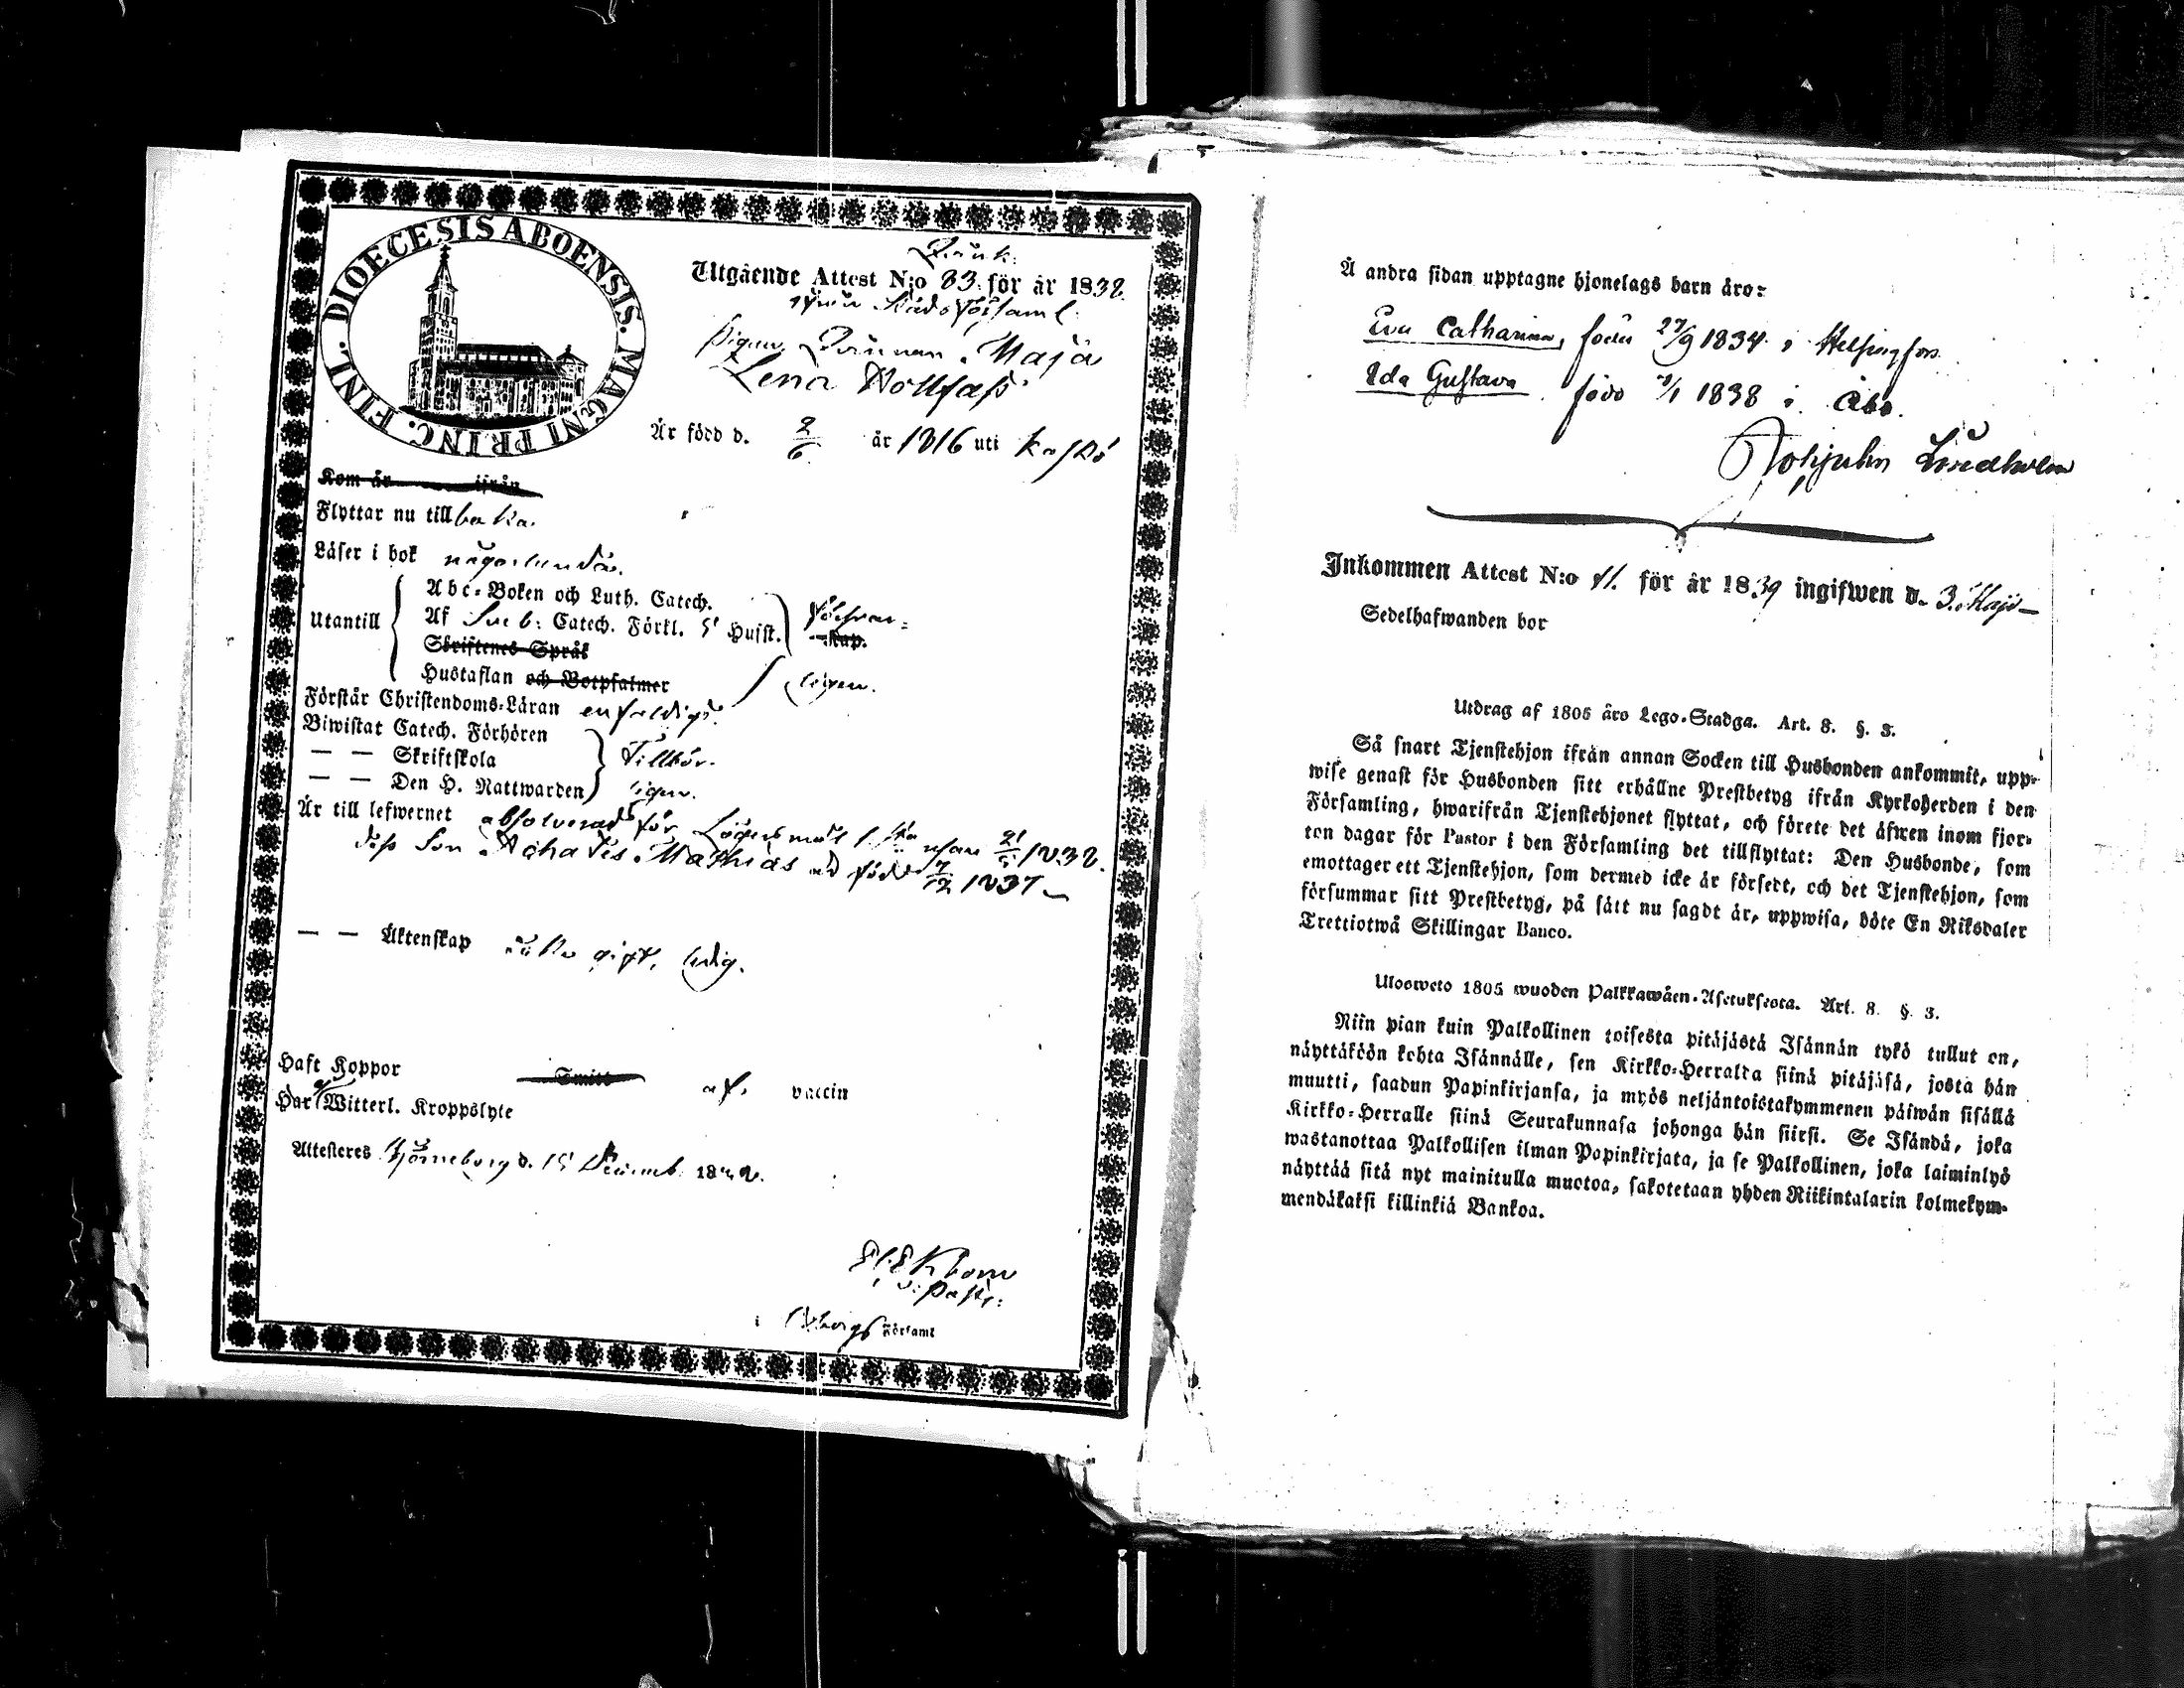 DIOECESIS ABOENSIS. MAGNI PRINC. FINL.
Utgående Attest N:o 83. för år 1838
Pigan Maja
Lena Hollfast
Är född d. 2/6 år 1816 uti Kaskö
Kom år ifrån
Flyttar nu tillbaka.
Läser i bok någorlunda.
Utantill
Abc-Boken och Luth. Catech.
Af Sveb: Catech. Förkl. 5 Hufst.
Skriftenes Språk
Hustaflan och Botpsalmer
Förstår Christendoms-Läran enfaldigt.
Biwistat Catech. Förhören
— — Skriftskola
— — Den H. Nattwarden
Tillbör-
ligen.
Är till lefwernet absolverad för Lägersmål 21/5 1838.
dess Son Achates Mathias född 7/12 1837
— — Äktenskap icke gift, ledig.
Haft Koppor Smitt af vaccin
Har Witterl. Kroppslyte
Attesteres Björneborg d. 15 Decemb. 1838.
v: Past:
i Bborgs Församl
Å andra sidan upptagne hjonelags barn äro:
Eva Catharina, född 27/9 1834 i Helsingfors
Ida Gustava född 3/1 1838 i Åbo.
Lindholm
Inkommen Attest N:o 11. för år 1839 ingifwen d. 3. Maji
Sedelhafwanden bor
Utdrag af 1805 års Lego-Stadga. Art. 8. §. 3.
Så snart Tjenstehjon ifrån annan Socken till Husbonden ankommit, upp-
wise genast för Husbonden sitt erhållne Prestbetyg ifrån Kyrkoherden i den
Församling, hwarifrån Tjenstehjonet flyttat, och förete det äfwen inom fjor-
ton dagar för Pastor i den Församling det tillflyttat: Den Husbonde, som
emottager ett Tjenstehjon, som dermed icke är försedt, och det Tjenstehjon, som
försummar sitt Prestbetyg, på sätt nu sagdt är, uppwisa, böte En Riksdaler
Trettiotwå Skillingar Banco.
Ulosweto 1805 wuoden Palkkawäen-Asetuksesta. Art. 8. §. 3.
Niin pian kuin Palkollinen toisesta pitäjästä Isännän tykö tullut on,
näyttäköön kohta Isännälle, sen Kirkko-Herralta siinä pitäjäsä, josta hän
muutti, saadun Papinkirjansa, ja myös neljäntoistakymmenen päiwän sisällä
Kirkko-Herralle siinä Seurakunnasa johonga hän siirsi. Se Isändä, joka
wastanottaa Palkollisen ilman Papinkirjata, ja se Palkollinen, joka laiminlyö
näyttää sitä nyt mainitulla muotoa, sakotetaan yhden Riikintalarin kolmekym-
mendäkaksi killinkiä Bankoa.